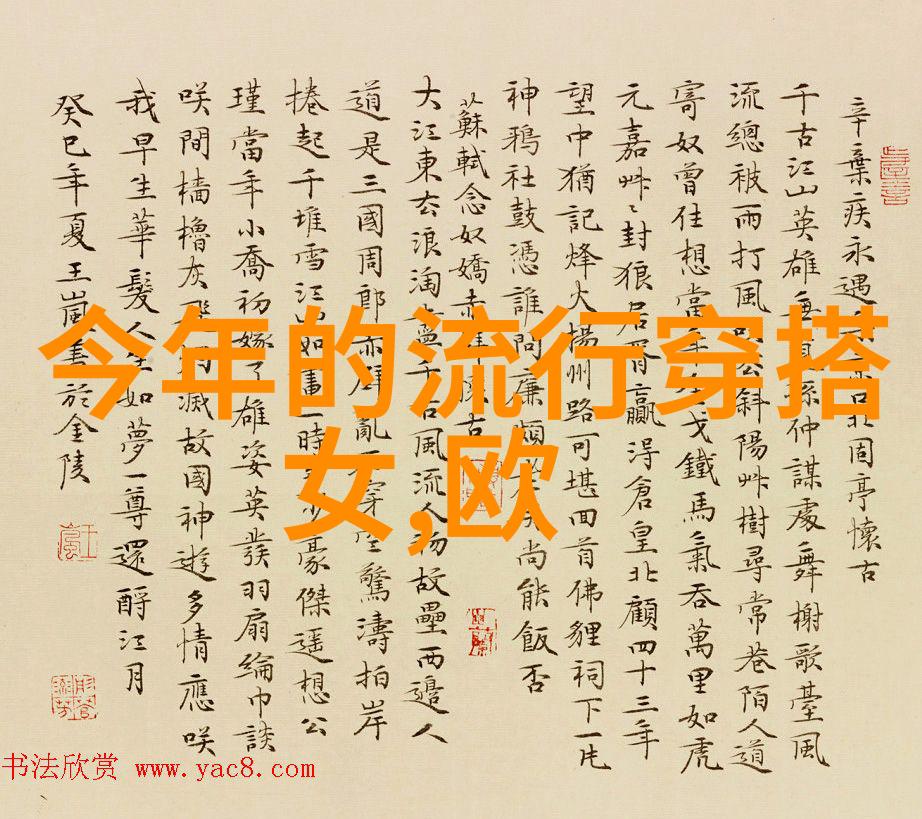 今年的流行穿搭
女,欧
辛棄疾永遇北固亭懷古
千古江山英雄無孫仲謀處舞榭歌臺風
流總被雨打風斜陽艸樹尋常巷陌人道
寄奴曾住想當年戈鐵馬氣吞萬里如虎
元嘉艸〻封狼居胥贏得倉皇北顧四十三年
望中猶記烽火揚州路可堪回首佛貍祠下一片
神鴉社鼓憑誰問廉頗尚能飯否
蘇軾念奴嬌赤壁懷古
大江東去浪淘盡千古風流人物故壘西邊人
道是三國周郎赤壁亂穿空驚濤拍岸
捲起千堆雪江山如畫一時多少豪傑遥想公
瑾當年小喬初嫁了雄姿英發羽扇綸巾談
咲間檣櫓灰飛滅故國神遊多情應咲
我早生華髮人生如夢一尊還酹江月
癸巳年夏王嵐書於金陵
书法欣赏 www.yac8.com